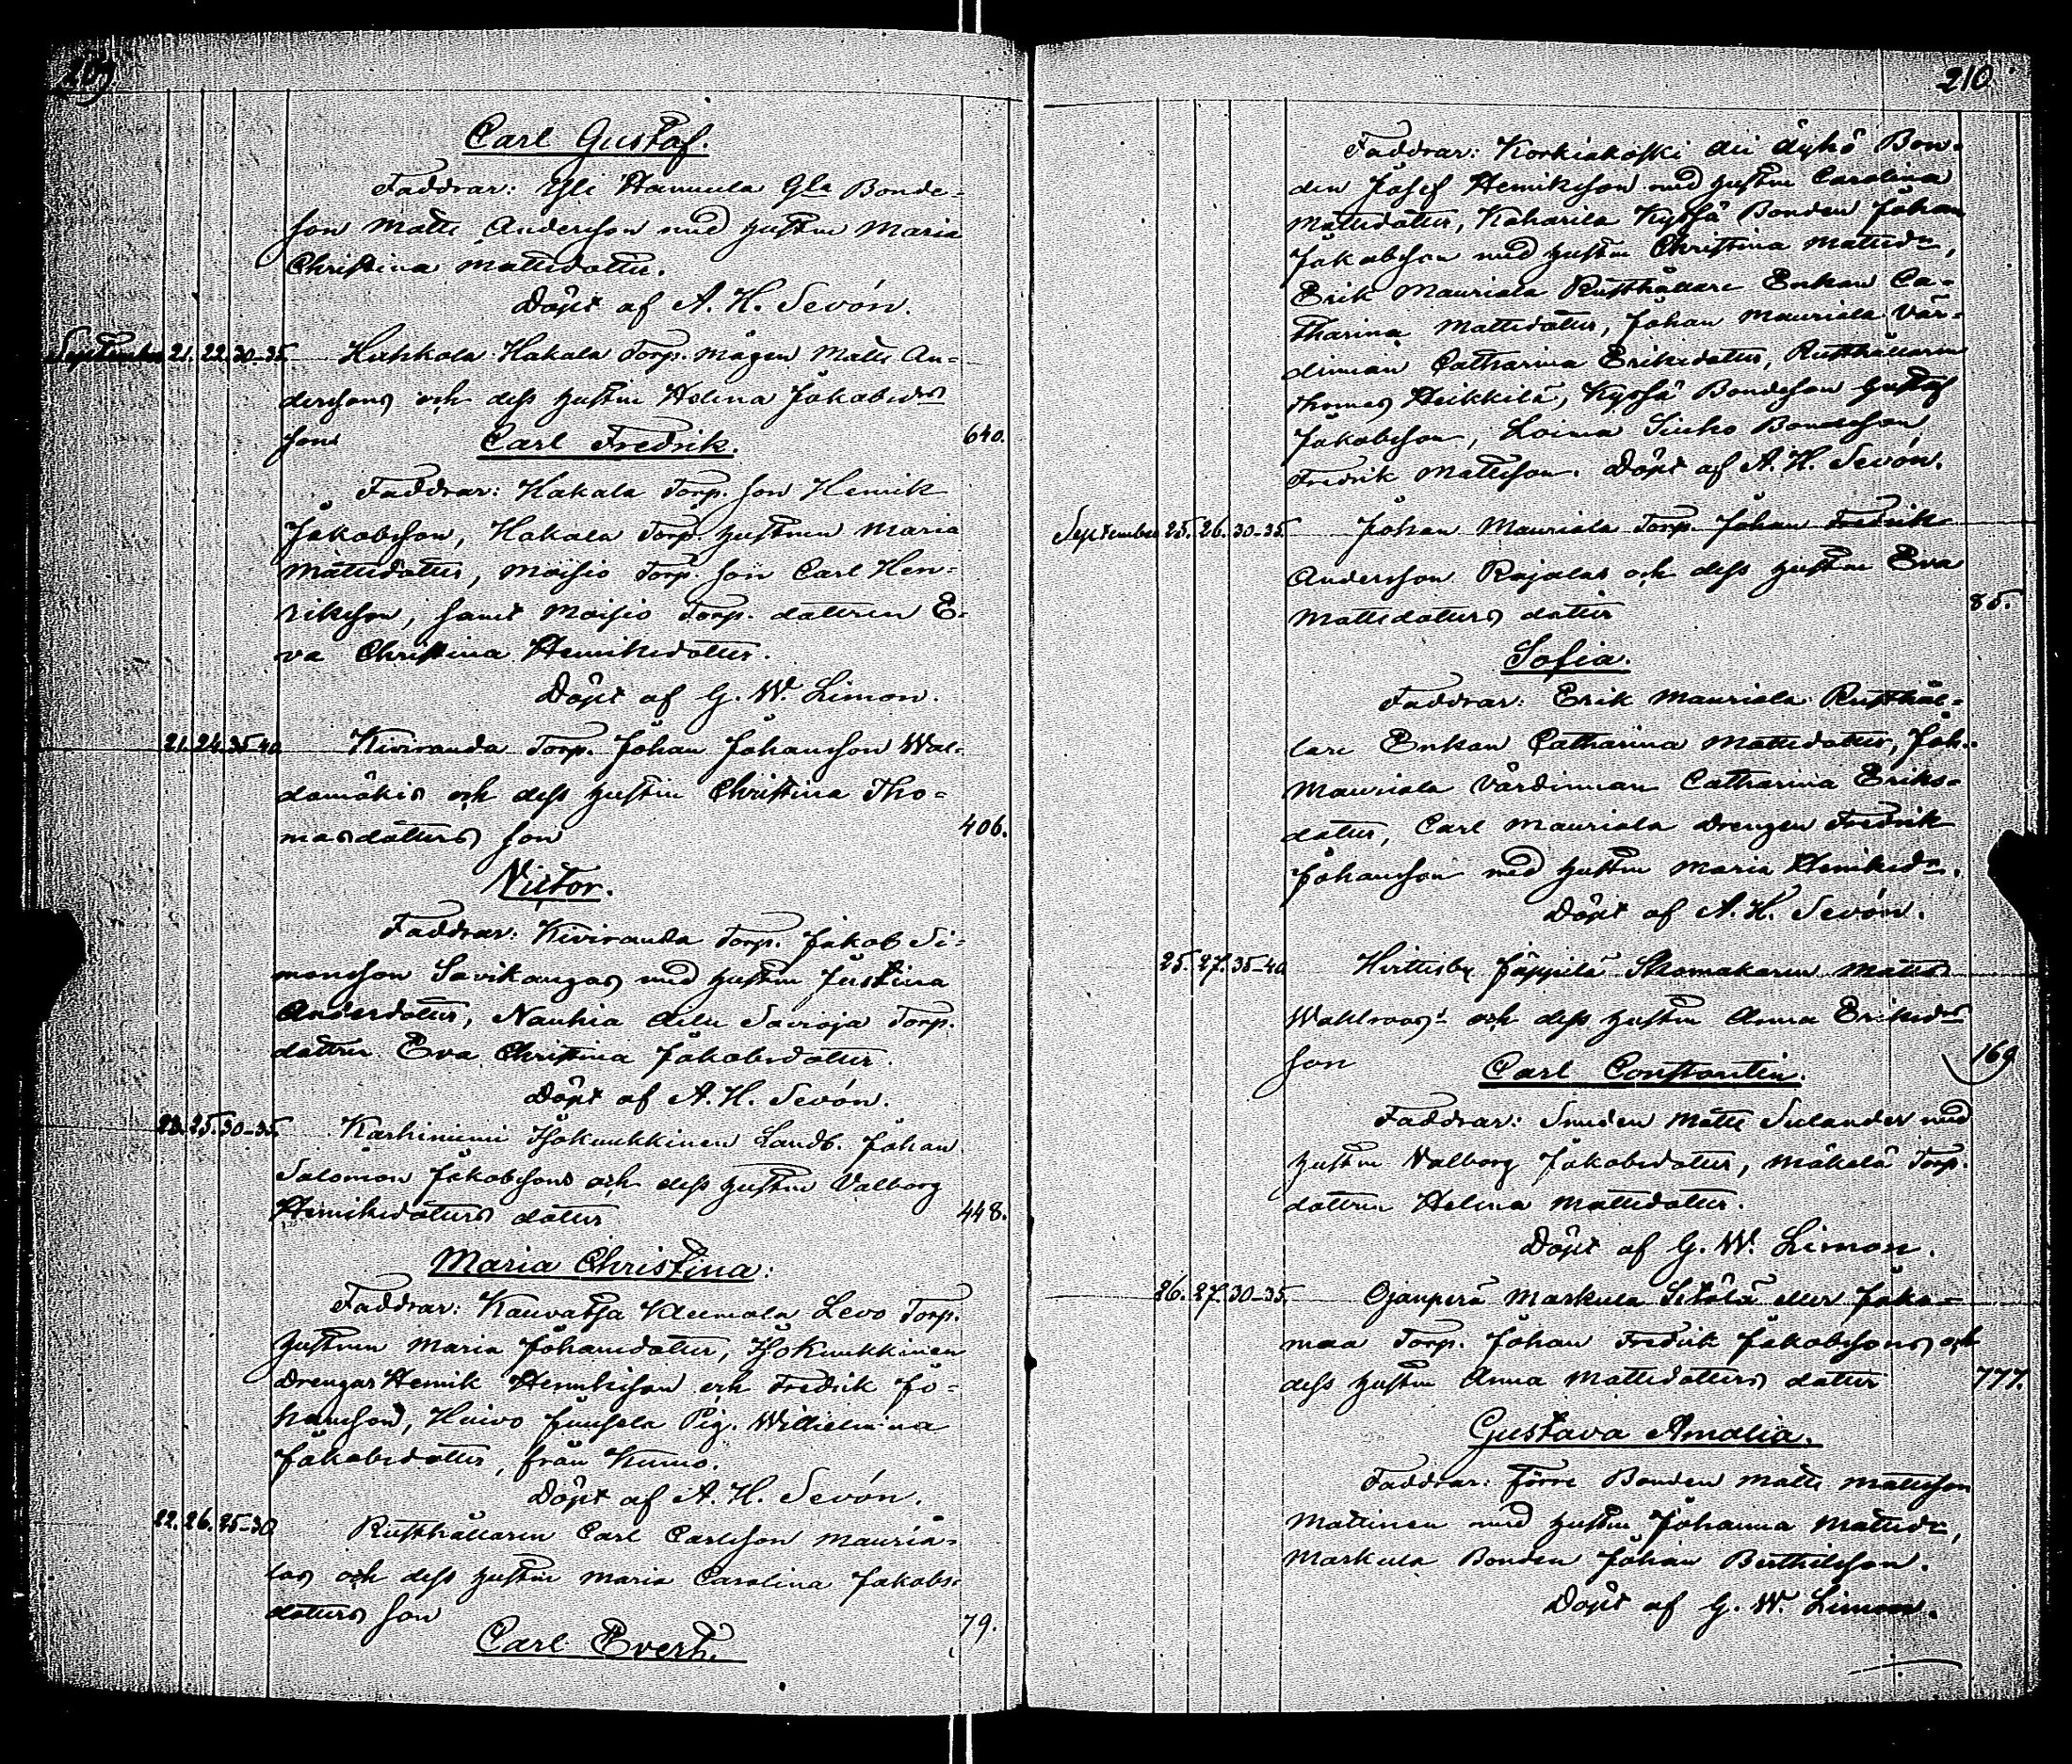 209.
Carl Gustaf.
Faddrar: Yli Hannula Gla Bonde-
son Matts Andersson med hustru Maria
Christina Mattsdotter.
Döpt af A. H. Sevón.
September 21. 22. 30-35. Huhkola Hakala Torp. mågen Matts An-
derssons och dess hustru Helena Jakobsdrs
son Carl Fredrik. 640.
Faddrar: Hakala Torp. son Henrik
Jakobsson, Hakala Torp. hustrun Maria
Mattsdotter, Moisio Torp. son Carl Hen-
riksson, samt Moisio Torp. dottren E-
va Christina Henriksdotter.
Döpt af G. W. Limon.
21. 24. 35-40 Kiviranda Torp. Johan Johansson Wal-
damäkis och dess hustru Christina Tho-
masdotters son 406.
Victor.
Faddrar: Kiviranda Torp. Jakob Si-
monsson Savikangas med hustru Justina
Andersdotter, Nauhia Torp.
dottren Eva Christina Jakobsdotter.
Döpt af A. H. Sevón.
23. 25. 30-35. Karhiniemi Isokuukkinen Landb. Johan
Salomon Jakobssons och dess hustru Valborg
Henriksdotters dotter 448.
Maria Christina:
Faddrar: Kauvatsa Levo Torp.
hustrun Maria Johansdotter, Isokuukkinen
drengar Henrik Henriksson och Fredrik Jo-
hansson, Huivo Juusela Pig. Wilhelmina
Jakobsdotter, från Kumo.
Döpt af A. H. Sevón.
22. 26. 25-30 Rusthållaren Carl Carlsson Mauria-
las och dess hustru Maria Carolina Jakobs-
dotters son 79.
Carl Evert.
210.
Faddrar: Korkiakoski Äyhö Bon-
den Josef Henriksson med hustru Carolina
Mattsdotter, Kaharila Kyssä Bonden Johan
Jakobsson med hustru Christina Mattsdr,
Erik Mauriala Rusthållare Enkan Ca-
tharina Mattsdotter, Johan Mauriala vär-
dinnan Catharina Eriksdotter, Rusthållaren
Thomas Heikkilä, Kyssä Bondeson Gustaf
Jakobsson, Loima Sicko Bondeson
Fredrik Mattsson. Döpt af A. H. Sevón.
September 25. 26. 30-35. Johan Mauriala Torp. Johan Fredrik
Andersson Rajalas och dess hustru Eva
Mattsdotters dotter 85.
Sofia.
Faddrar: Erik Mauriala Rusthål-
lare Enkan Catharina Mattsdotter, Joh.
Mauriala värdinnan Catharina Eriks-
dotter, Carl Mauriala drengen Fredrik
Johansson med hustru Maria Henriksdr.
Döpt af A. H. Sevón.
25. 27. 35-40 Hirttisby Jäppilä Skomakaren Matts
Wahlroos' och dess hustru Anna Eriksdrs
son Carl Constantin. 169
Faddrar: Smeden Matts Sulander med
hustru Valborg Jakobsdotter, Mäkelä Torp.
dottren Helena Mattsdotter.
Döpt af G. W. Limon.
26. 27. 30-35. Ojanperä Markula Setälä eller Jaka-
maa Torp. Johan Fredrik Jakobssons och
dess hustru Anna Mattsdotters dotter 777.
Gustava Amalia.
Faddrar: Förre Bonden Matts Mattsson
Mattinen med hustru Johanna Mattsdr,
Markula Bonden Johan Berthilsson.
Döpt af G. W. Limon.